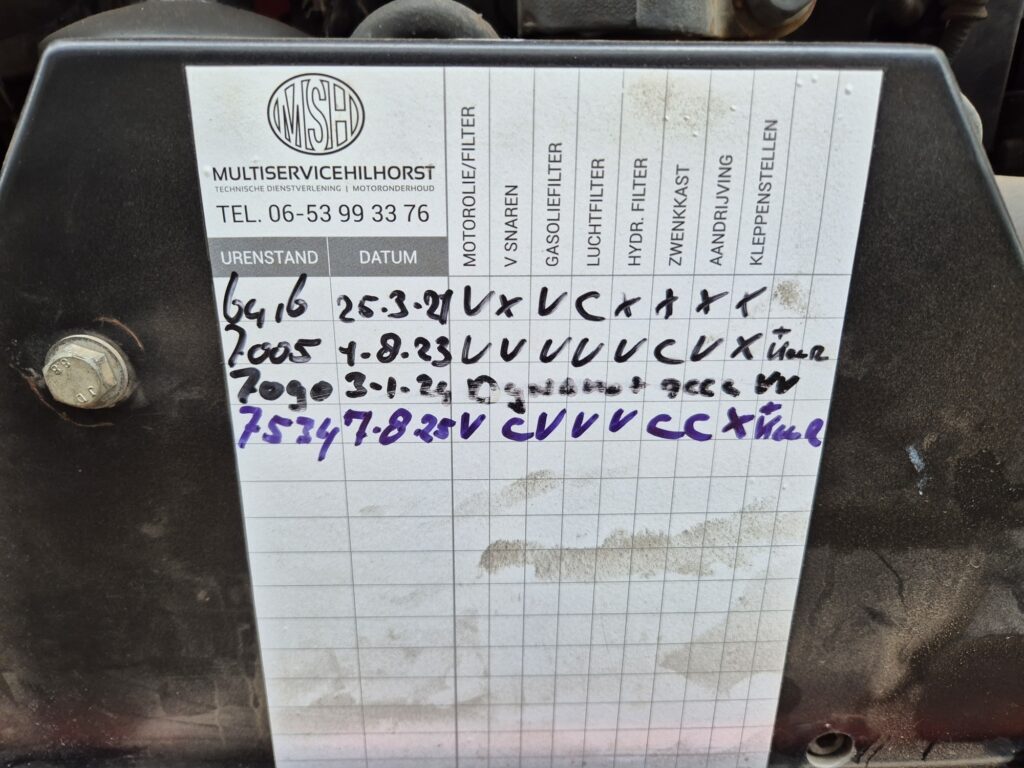 MSH
MULTISERVICEHILHORST
TECHNISCHE DIENSTVERLENING | MOTORONDERHOUD
TEL. 06-53 99 33 76
URENSTAND DATUM MOTOROLIE/FILTER V SNAREN GASOLIEFILTER LUCHTFILTER HYDR. FILTER ZWENKKAST AANDRIJVING KLEPPENSTELLEN
25.3.21 V X V C X X X X
7005 1.8.23 V V V V V C V X +
7090 3-1-24
7534 7.8.25 V C V V V C C X +